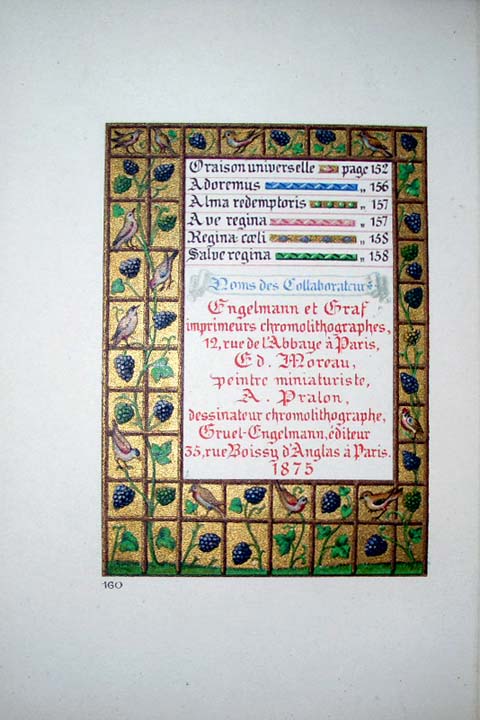 Oraison universelle page 152
Adoremus " 156
Alma redemptoris " 157
Ave regina " 157
Regina cœli " 158
Salve regina " 158
Noms des Collaborateurs
Engelmann et Graf
imprimeurs chromolithographes,
12, rue de l'Abbaye à Paris,
Ed. Moreau,
peintre miniaturiste,
A. Pralon,
dessinateur chromolithographe,
Gruel-Engelmann, éditeur
35, rue Boissy d'Anglas à Paris.
1875
160